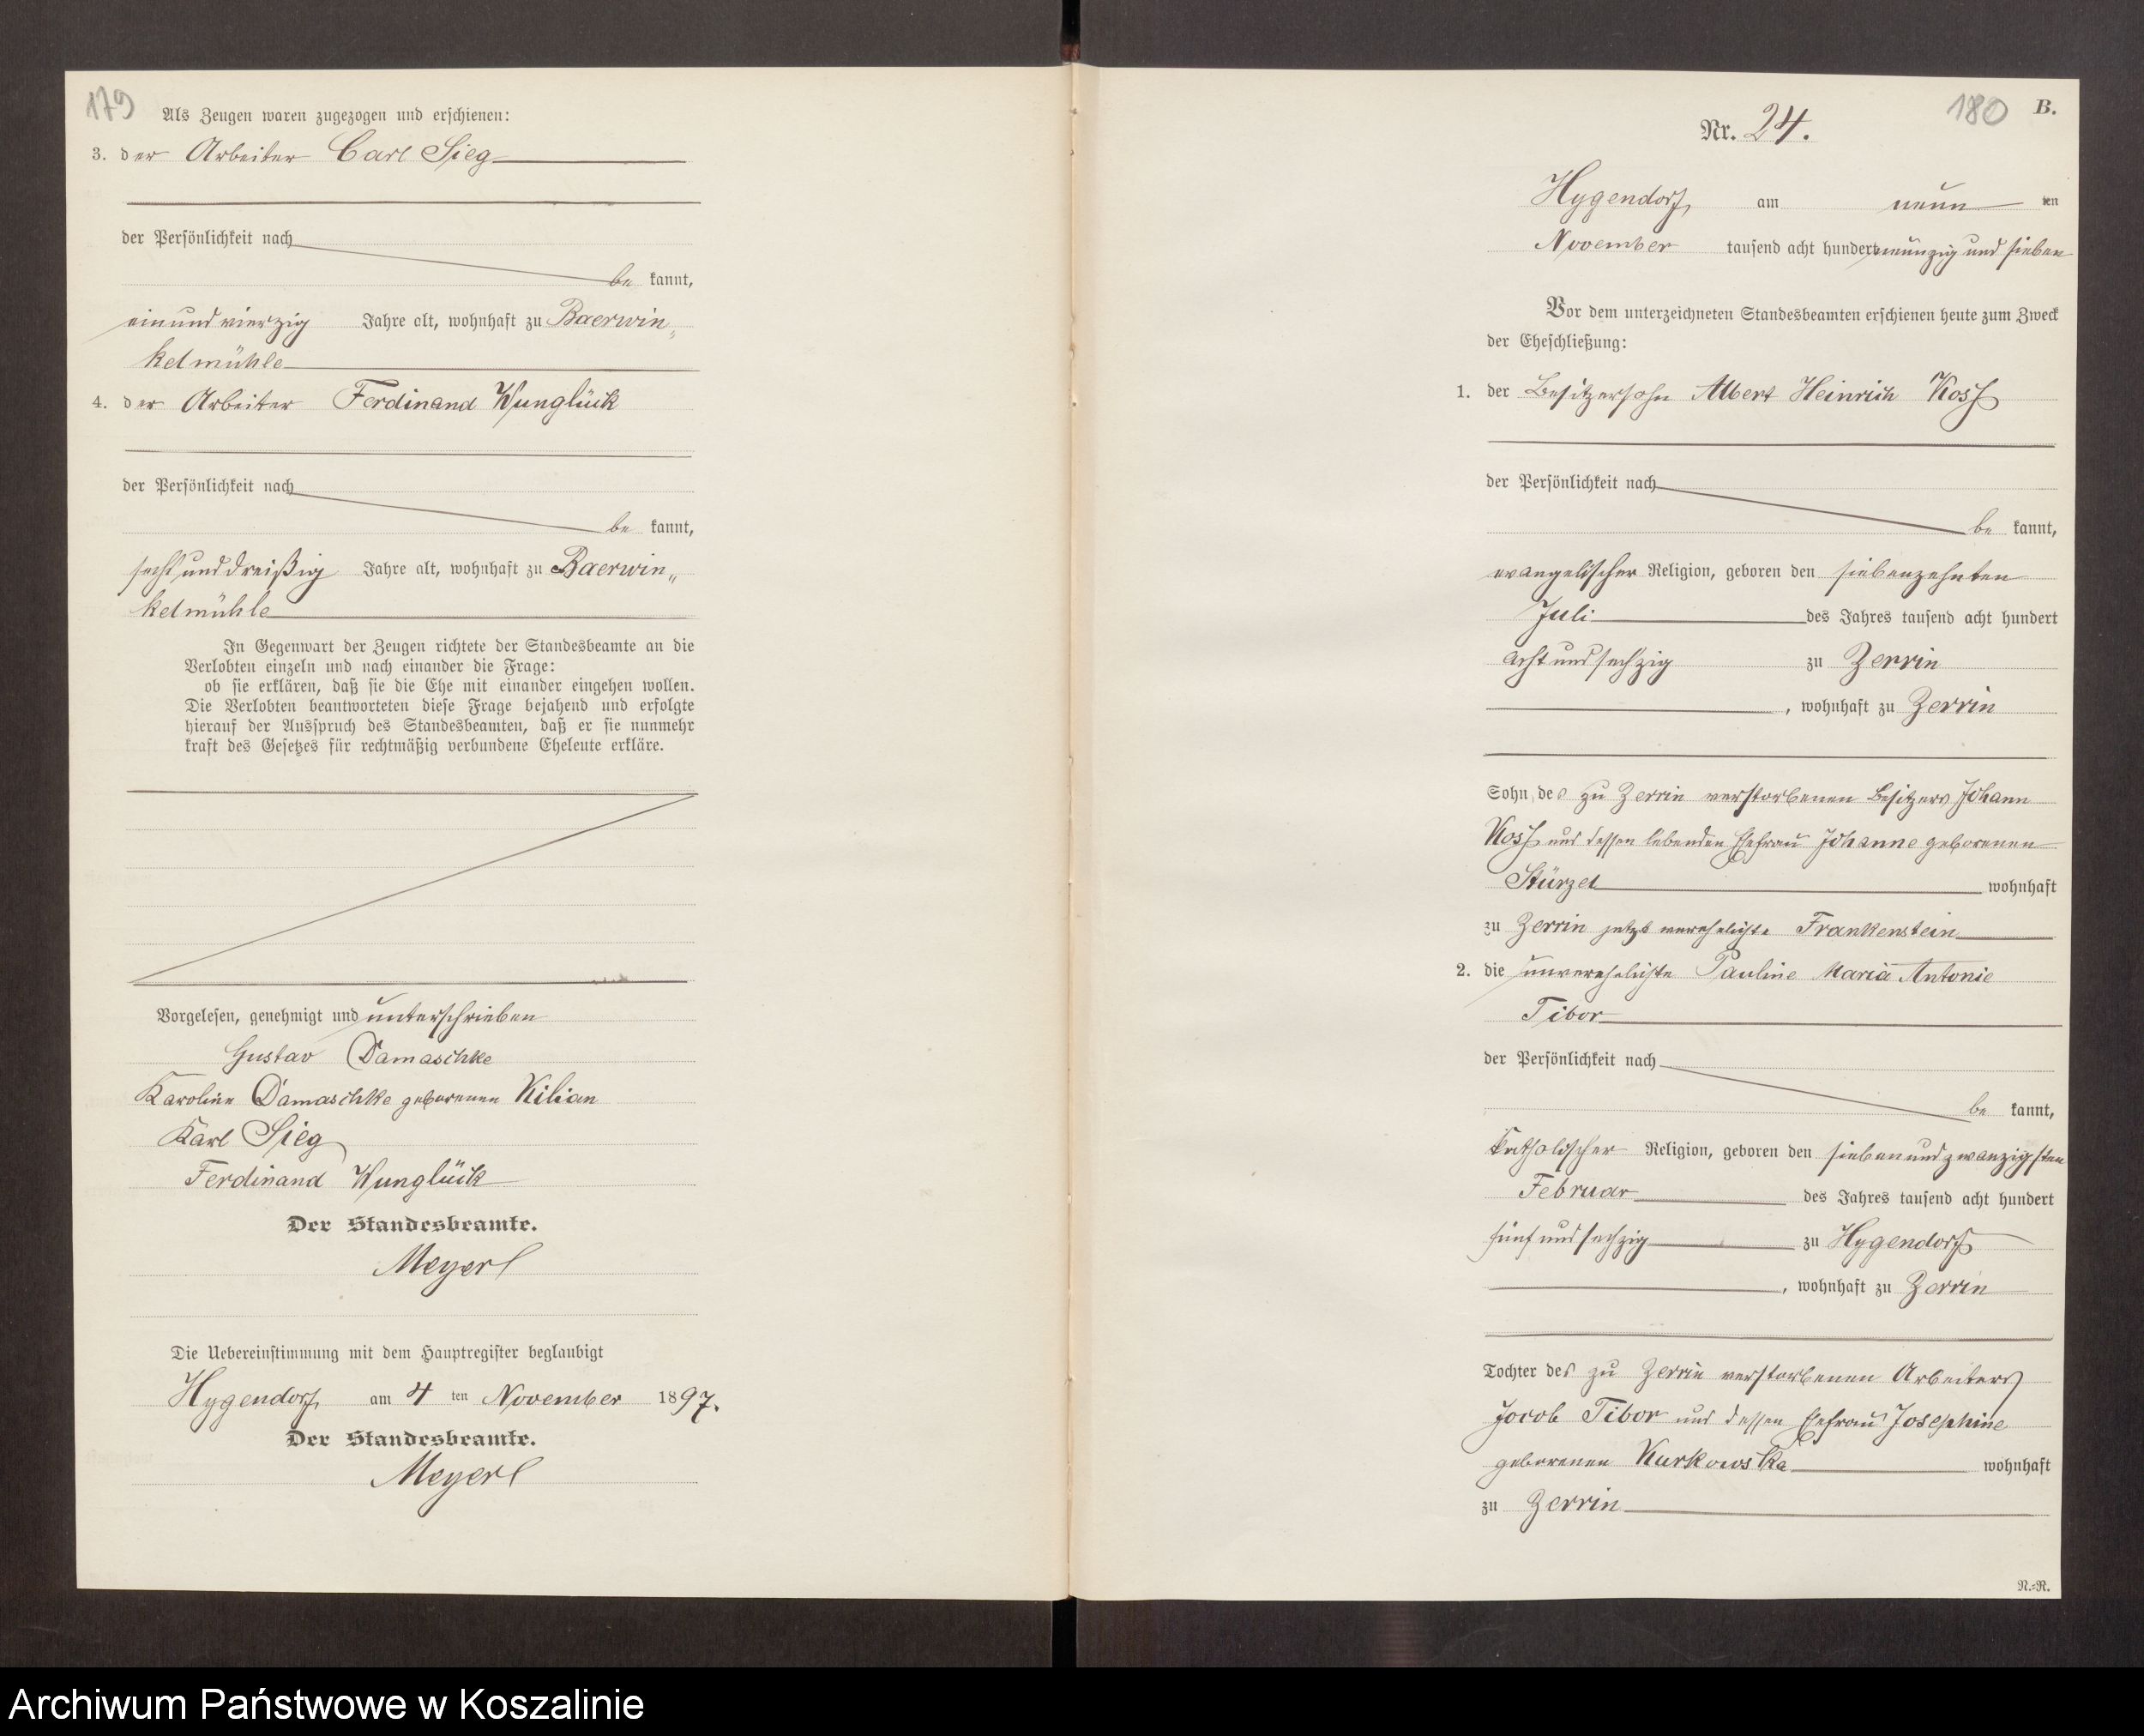 179
Als Zeugen waren zugezogen und erschienen:
3. der Arbeiter Carl Sieg
der Persönlichkeit nach
be kannt,
einundvierzig Jahre alt, wohnhaft zu Baerwin-
kelmühle
4. der Arbeiter Ferdinand Wunglück
der Persönlichkeit nach
be kannt,
sechsunddreißig Jahre alt, wohnhaft zu Baerwin-
kelmühle
In Gegenwart der Zeugen richtete der Standesbeamte an die
Verlobten einzeln und nach einander die Frage:
ob sie erklären, daß sie die Ehe mit einander eingehen wollen.
Die Verlobten beantworteten diese Frage bejahend und erfolgte
hierauf der Ausspruch des Standesbeamten, daß er sie nunmehr
kraft des Gesetzes für rechtmäßig verbundene Eheleute erkläre.
Vorgelesen, genehmigt und unterschrieben
Gustav Damaschke
Karoline Damaschke geborenen Kilian
Karl Sieg
Ferdinand Wunglück
Der Standesbeamte.
Meyerl
Die Uebereinstimmung mit dem Hauptregister beglaubigt
Hygendorf, am 4 ten November 1897.
Der Standesbeamte.
Meyerl
180 B.
Nr. 24.
Hygendorf, am neun ten
November tausend acht hundert neunzig und sieben
Vor dem unterzeichneten Standesbeamten erschienen heute zum Zweck
der Eheschließung:
1. der Besitzersohn Albert Heinrich Koss
der Persönlichkeit nach
be kannt,
evangelischer Religion, geboren den siebenzehnten
Juli des Jahres tausend acht hundert
acht und sechzig zu Zerrin
, wohnhaft zu Zerrin
Sohn des zu Zerrin verstorbenen Besitzers Johann
Koss und dessen lebenden Ehefrau Johanne geborenen
Stürzel wohnhaft
zu Zerrin jetzt verehelichte Frankenstein
2. die unverehelichte Pauline Maria Antonie
Tibor
der Persönlichkeit nach
be kannt,
katholischer Religion, geboren den siebenundzwanzigsten
Februar des Jahres tausend acht hundert
fünf und sechzig zu Hygendorf
, wohnhaft zu Zerrin
Tochter des zu Zerrin verstorbenen Arbeiters
Jocob Tibor und dessen Ehefrau Josephine
geborenen Kurkowska wohnhaft
zu Zerrin
N.-R.
Archiwum Państwowe w Koszalinie